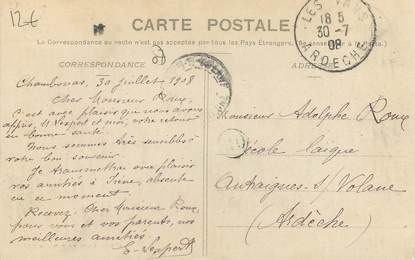 12€
CARTE POSTALE
La Correspondance au recto n'est pas acceptée par tous les Pays Etrangers.
CORRESPONDANCE
LES VANS
18 5
30-7
08
ARDECHE
Chambonas, 30 juillet 1908
Cher Monsieur Roux,
C'est avec plaisir que nous avons
appris, M. et moi, votre retour
en bonne santé.
Nous sommes très sensibles à
votre bon souvenir.
Je transmettrai avec plaisir
vos amitiés à Irène, absente
en ce moment.
Recevez, Cher Monsieur Roux,
pour vous et vos parents, nos
meilleures amitiés.
Monsieur Adolphe Roux
école laïque
Antraigues s/ Volane
(Ardèche)